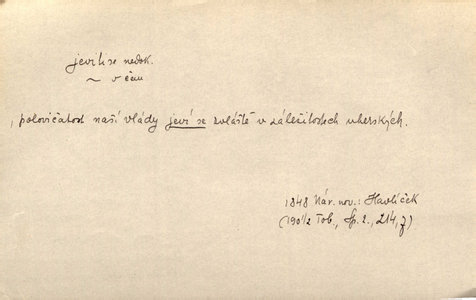 jeviti se nedok.
~ v čem
, polovičatost naší vlády jeví se zvláště v záležitostech uherských.
1848 Nár. nov.: Havlíček
(190½ Tob., Sp. 2., 214, 7)